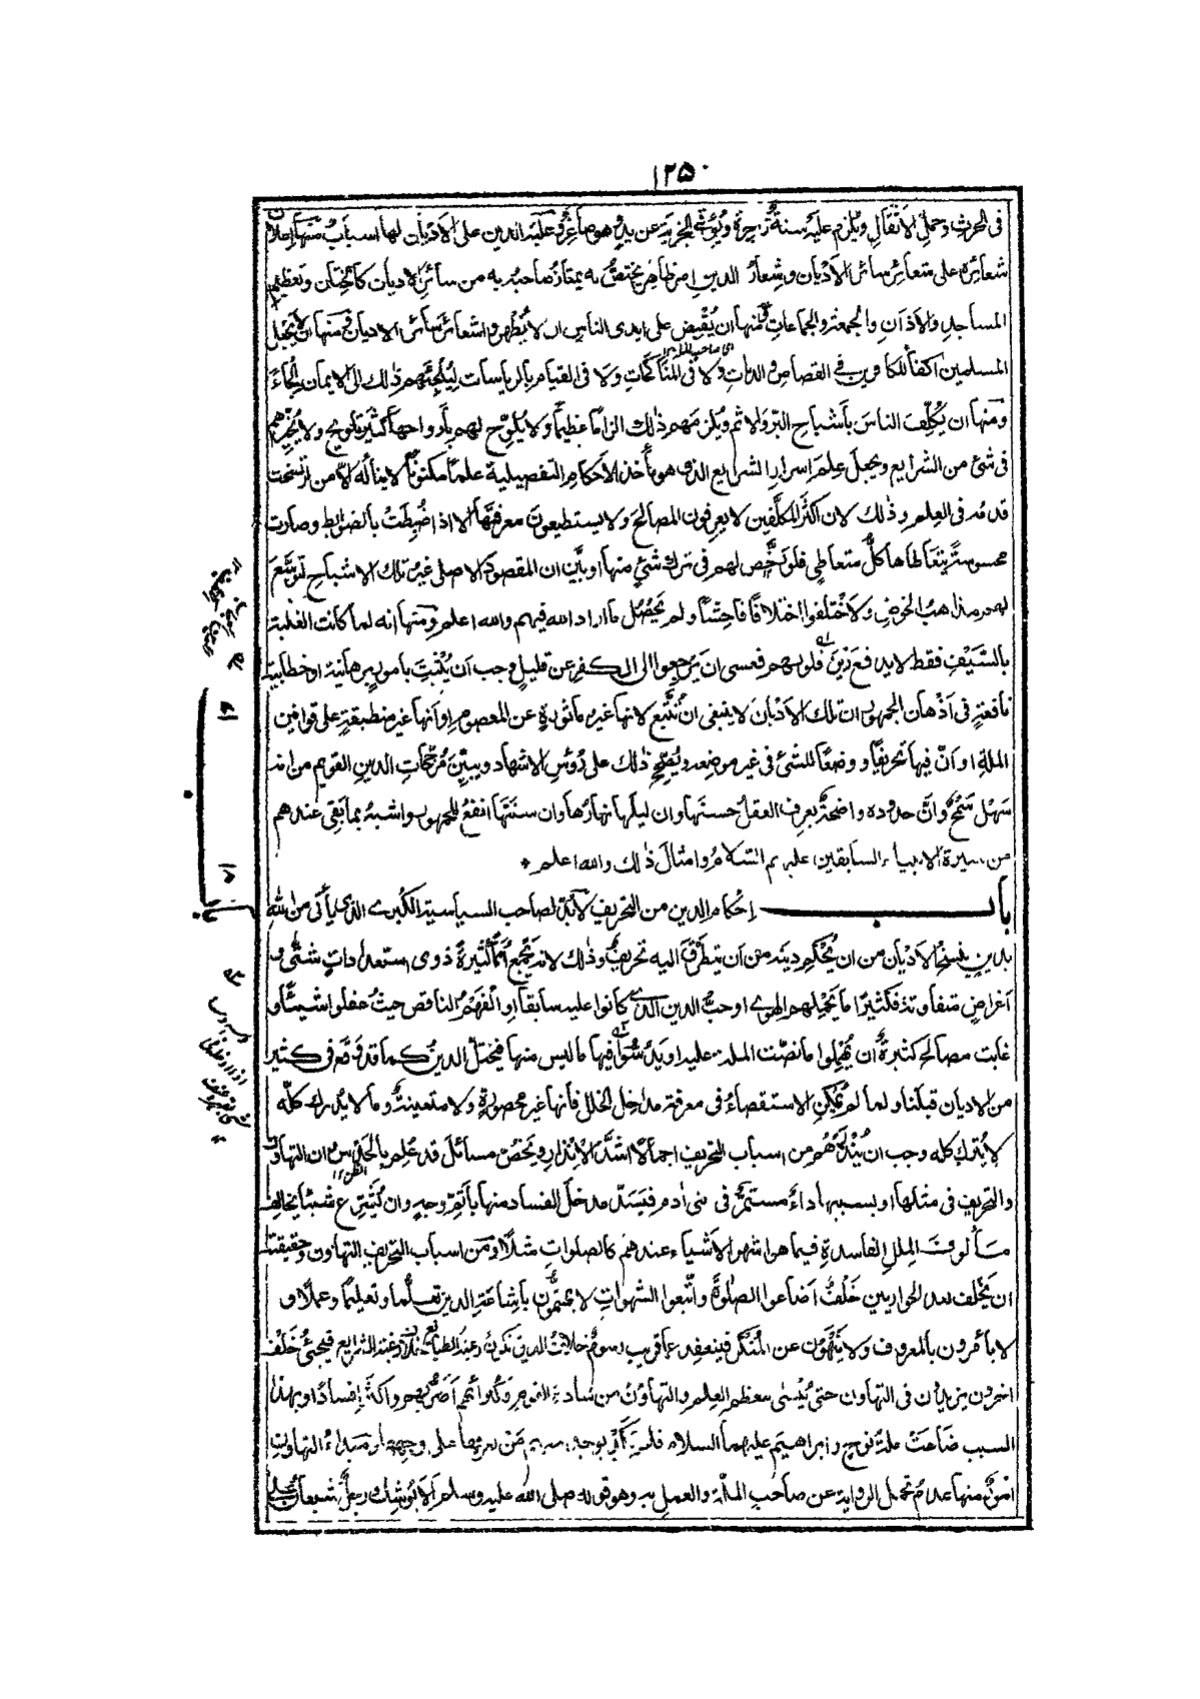 ١٢٥
فى الحرث وحمل الاثقال ويلزم عليه سنة زاجرة ويؤتى الجزية عن يد وهو صاغر وغلبة الدين على الاديان لها اسباب منها اعلان
شعائره على شعائر سائر الاديان وشعار الدين امر ظاهر يختص به يمتاز صاحبه به من سائر الاديان كالختان وتعظيم
المساجد والاذان والجمعة والجماعات ومنها ان يقبض على ايدى الناس ان لا يظهروا شعائر سائر الاديان ومنها ان لا يجعل
المسلمين اكفاء للكافرين فى القصاص والديات ولا فى المناكحات ولا فى القيام بالرياسات ليلجئهم ذلك الى الايمان الجاء
ومنها ان يكلف الناس باشباح البر والاثم ويلزمهم ذلك الزاما عظيما ولا يلوح لهم بارواحها كثير تلويح ولا يخيرهم
فى شئ من الشرايع ويجعل علم اسرار الشرايع الذى هو مأخذ الاحكام التفصيلية علما مكنونا لا يناله الا من ارتسخت
قدمه فى العلم وذلك لان اكثر المكلفين لا يعرفون المصالح ولا يستطيعون معرفتها الا اذا ضبطت بالضوابط وصارت
محسوسة يتعاطاها كل متعاطى فلو رخص لهم فى ترك شئ منها او بين ان المقصود الاصلى غير تلك الاشباح لتوسع
لهم مذاهب الخوض ولاختلفوا اختلافا فاحشا ولم يحصل ما اراد الله فيهم والله اعلم ومنها انه لما كانت الغلبة
بالسيف فقط لا يدفع رين قلوبهم فعسى ان يرجعوا الى الكفر عن قليل وجب ان يثبت بامور برهانية او خطابية
نافعة فى اذهان الجمهور ان تلك الاديان لا ينبغى ان تتبع لانها غير ماثورة عن المعصوم او انها غير منطبقة على قوانين
الملة او ان فيها تحريفا ووضعا للشئ فى غير موضعه ويصحح ذلك على رؤس الاشهاد ويبين مرجحات الدين القويم من انه
سهل سمح وان حدوده واضحة يعرف العقل حسنها وان ليلها نهارها وان سننها انفع للجمهور واشبه بما بقى عندهم
من سيرة الانبياء السابقين عليهم السلام وامثال ذلك والله اعلم *
باب احكام الدين من التحريف لا بد لصاحب السياسة الكبرى الذى ياتى من الله
بدين ينسخ الاديان من ان يحكم دينه من ان يتطرق اليه تحريف وذلك لانه يجمع امما كثيرة ذوى استعدادات شتى و
اغراض متفاوتة فكثيرا ما يحملهم الهوى او حب الدين الذى كانوا عليه سابقا او الفهم الناقص حيث عقلوا شيئا و
غابت مصالح كثيرة ان يهملوا ما نصت الملة عليه او يدسوا فيها ما ليس منها فيختل الدين كما قد وقع فى كثير
من الاديان قبلنا ولما لم يمكن الاستقصاء فى معرفة مداخل الخلل فانها غير محصورة ولا متعينة وما لا يدرك كله
لا يترك كله وجب ان ينذرهم من اسباب التحريف اجمالا اشد الانذار ويخص مسائل قد علم بالحدس ان التهاون
والتحريف فى مثلها او بسببها داء مستمر فى بنى ادم فيسد مدخل الفساد منها باتم وجه وان يشرع شيئا يخالف
مألوف الملل الفاسدة فيما هو اشهر الاشياء عندهم كالصلوات مثلا ومن اسباب التحريف التهاون وحقيقته
ان يخلف بعد الحواريين خلف اضاعوا الصلوة واتبعوا الشهوات لا يهتمون باشاعة الدين تعلما وتعليما وعملا و
لا يأمرون بالمعروف ولا ينهون عن المنكر فينعقد عما قريب رسوم خلاف الدين وتكون رغبة الطبائع خلاف رغبة الشرايع فيجئ خلف
اخرون يزيدون فى التهاون حتى ينسى معظم العلم والتهاون من سادة القوم وكبرائهم اضر بهم واكثر افسادا وبهذا
السبب ضاعت ملة نوح وابراهيم عليهما السلام فلم يكد يوجد منهم من يعرفها على وجهها ومبدأ التهاون
امور منها عدم تحمل الرواية عن صاحب الملة والعمل به وهو قوله صلى الله عليه وسلم الا يوشك رجل شبعان على